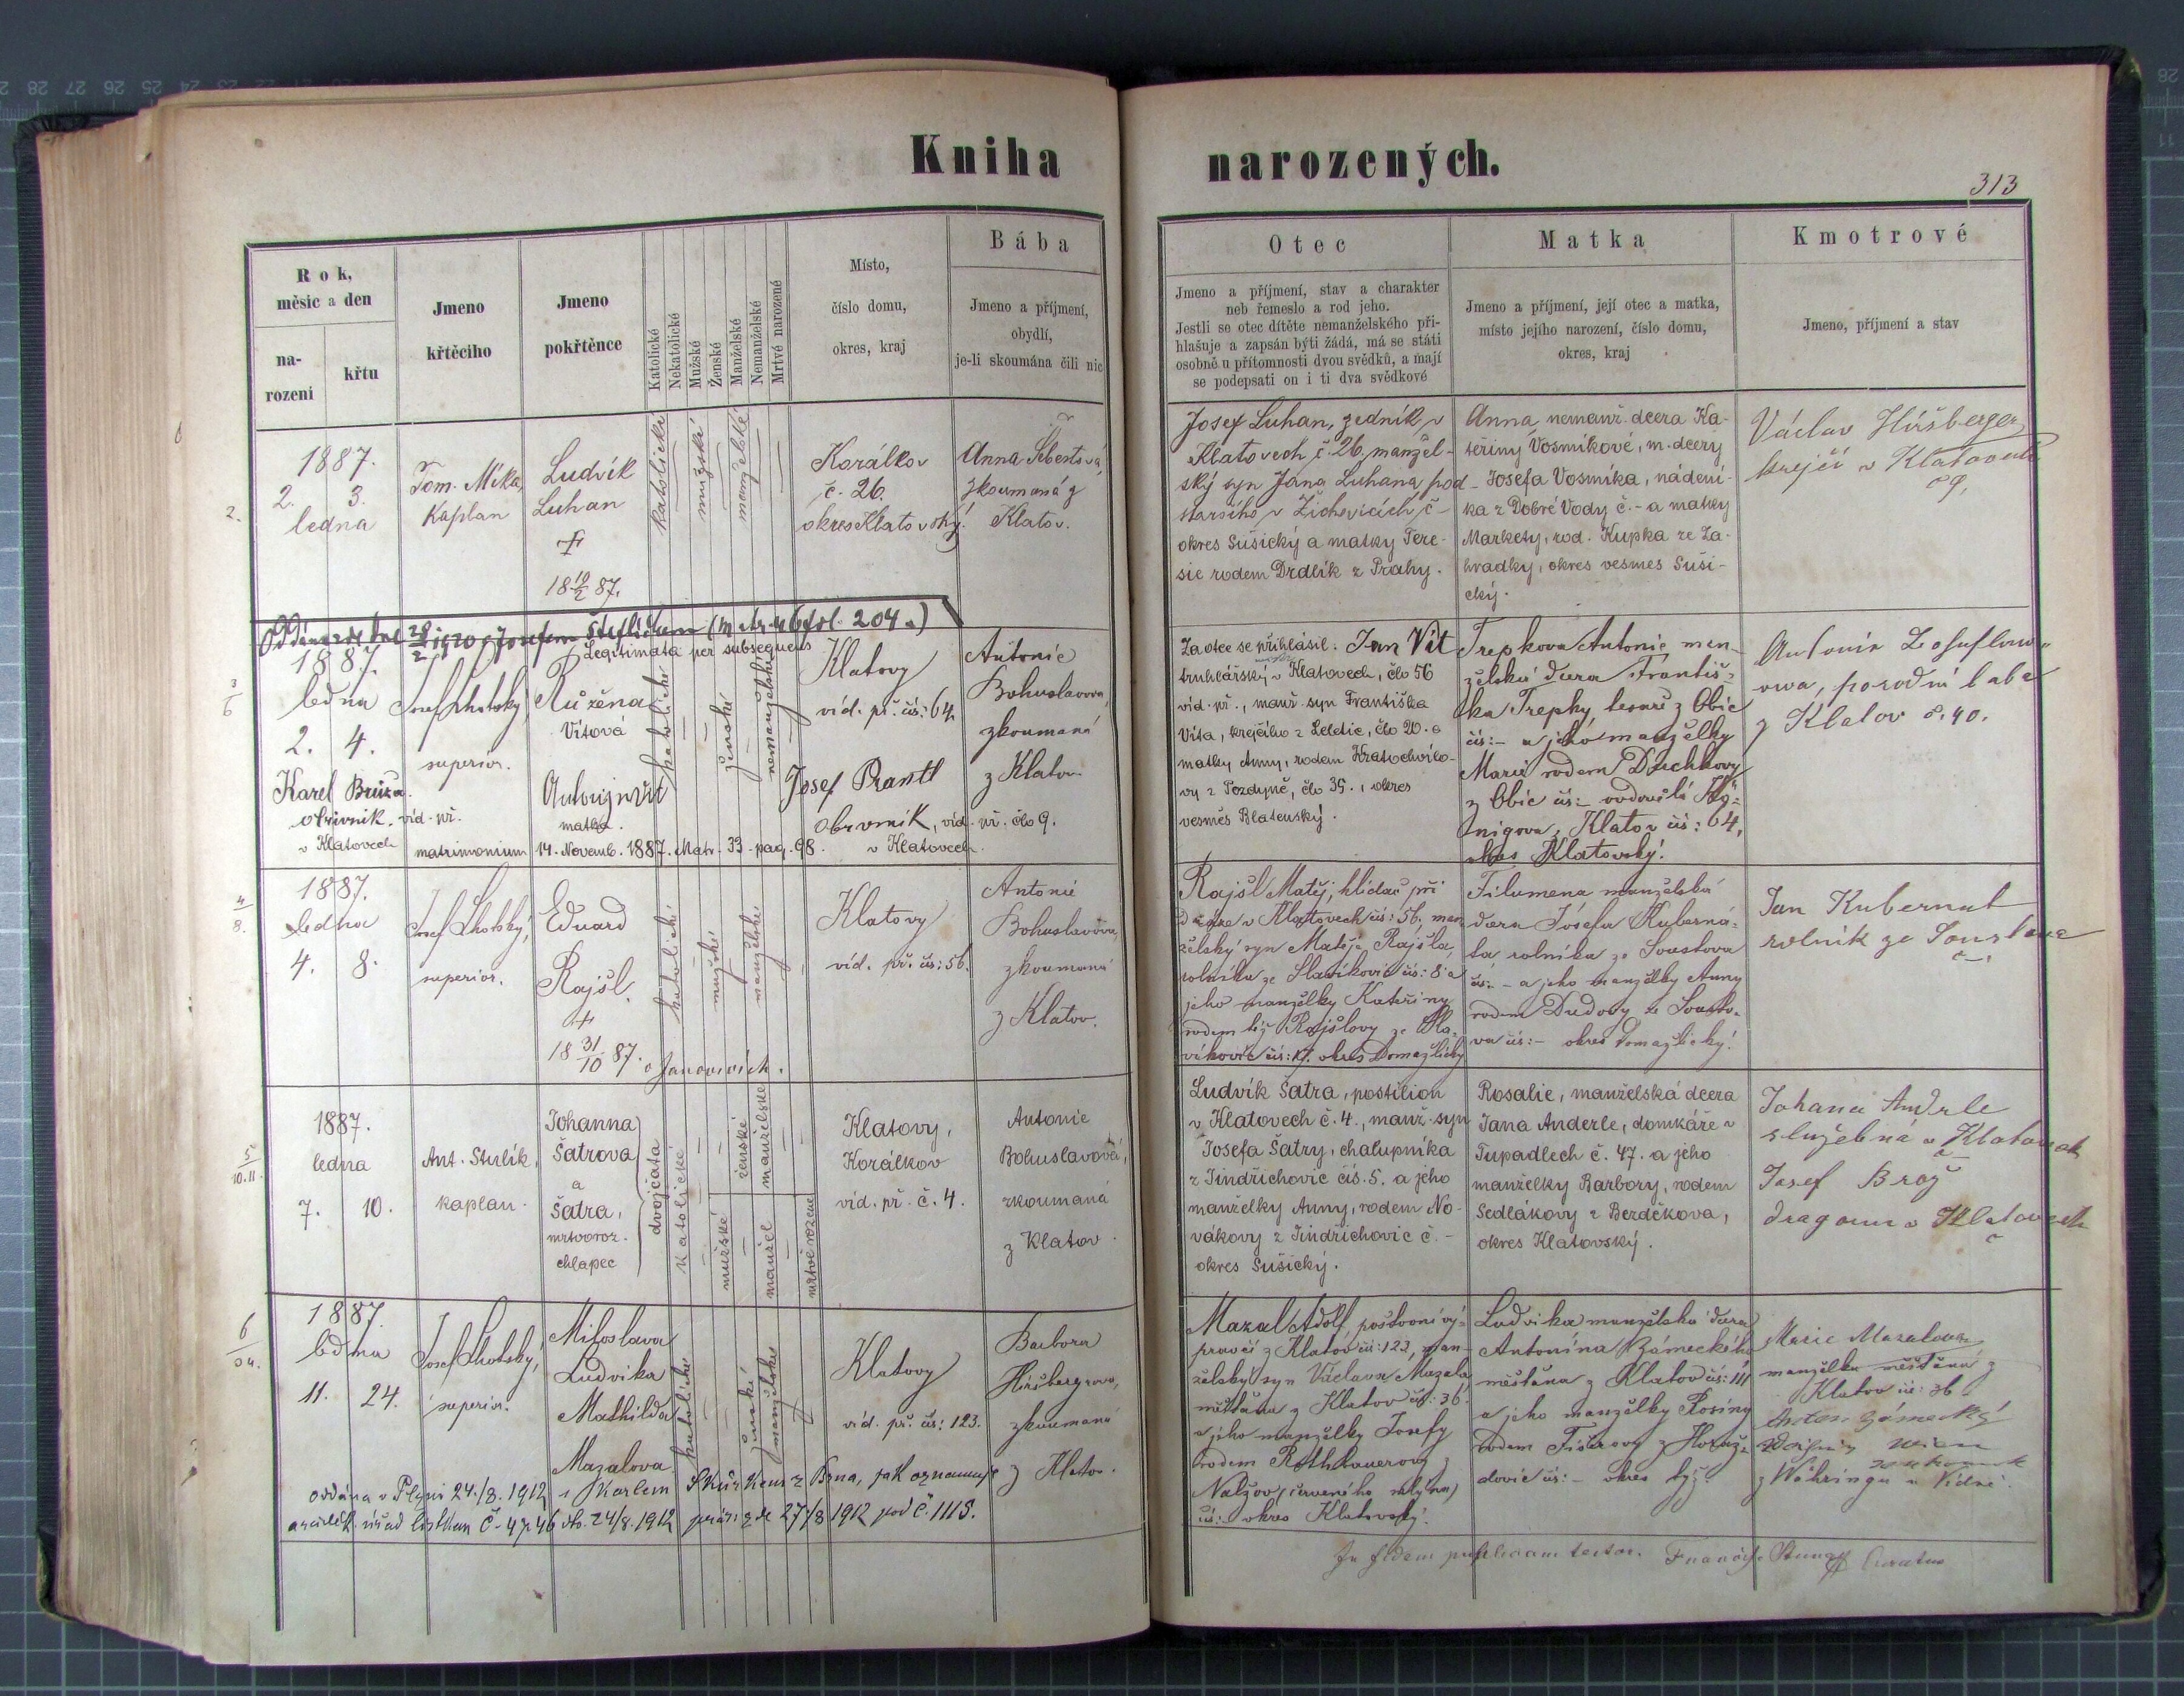 Kniha narozených.
313
Rok,
měsíc a den
na-
rození
křtu
Jmeno
křtěcího
Jmeno
pokřtěnce
Katolické
Nekatolické
Mužské
Ženské
Manželské
Nemanželské
Mrtvé narozené
Místo,
číslo domu,
okres, kraj
Bába
Jmeno a příjmení,
obydlí,
je-li skoumána čili nic
Otec
Jmeno a příjmení, stav a charakter
neb řemeslo a rod jeho.
Jestli se otec dítěte nemanželského při-
hlašuje a zapsán býti žádá, má se státi
osobně u přítomnosti dvou svědků, a mají
se podepsati on i ti dva svědkové
Matka
Jmeno a příjmení, její otec a matka,
místo jejího narození, číslo domu,
okres, kraj
Kmotrové
Jmeno, příjmení a stav
2.
1887.
2. 3.
ledna
Tom. Míka,
Kaplan
Ludvík
Luhan
†
18 10/2 87.
katolické
mužské
manželské
Korálkov
č. 26.
okres Klatovský.
Anna
zkoumaná z
Klatov.
Josef Luhan, zedník v
Klatovech č. 26, manžel-
ský syn Jana Luhana pod-
staršího v Žichovicích č-
okres Sušický a matky Tere-
sie rodem Drdlík z Prahy.
Anna, nemanž. dcera Ka-
teřiny Vosmíkové, m. dcery
Josefa Vosmíka, nádení-
ka z Dobré Vody č.- a matky
Markety, rod. Kupka ze Za-
hradky, okres vesmes Suši-
cký.
Václav Hiršberger
krejčí v Klatovech
č 9,
Oddána zde dne 28/2 1920 s Josefem Šteflíčkem (matr. 46 fol. 204.)
Legitimata per subsequens
3/6
1887.
ledna
2. 4.
Josef Lhotský
superior.
Růžena
Vítová
katolické
ženské
nemanželské
Klatovy
víd. př. čís: 64.
Antonie
Bohuslavova,
zkoumaná
z Klatov
Karel Bruža.
obuvník. víd. př.
v Klatovech
Antonín Vít
matka.
Josef Prantl
Obuvník, víd. př. člo 9.
v Klatovech.
matrimonium 14. Novemb. 1887. Matr. 33. pag. 98.
Za otce se přihlásil: Jan Vít
truhlářský v Klatovech, člo 56
víd. př., manž. syn Františka
Víta, krejčího z Leletic, člo 20. a
matky Anny, rodem Kratochvílo-
vy z Pozdyně, člo 35., okres
vesměs Blatenský.
Trepkova Antonie, man-
želská dcera Františ-
ka Trepky, tesaře z Obic
čís:- a jeho manželky
Marie rodem Duchkovy
z Obic čís:-
Klatov čís: 64,
okres Klatovský.
Antonie Bohuslavo-
vova, porodní baba
z Klatov č. 40.
4/8.
1887.
Ledna
4. 8.
Josef Lhotský,
superior.
Eduard
Rajšl.
†
18 31/10 87. v Janovicích.
katolické
mužské
manželské
Klatovy
víd. př. čís: 56.
Antonie
Bohuslavova,
zkoumaná
z Klatov.
Rajšl Matěj, hlídač při
dráze v Klatovech čís: 56, man-
želský syn Matěje Rajšla,
rolníka ze Slavíkovic čís: 8 a
jeho manželky Kateřiny
rodem též Rajšlovy ze Sla-
víkovic čís: 17. okres Domažlický
Filumena manželská
dcera Josefa Kuberná-
ta rolníka ze Soustova
čís:- a jeho manželky Anny
rodem Dudovy ze Sousto-
va čís:- okres Domažlický.
Jan Kubernat
rolník ze Soustova
č-.
5/10.11.
1887.
ledna
7. 10.
Ant. Stulík,
kaplan.
Johanna
Šatrova
a
Šatra,
mrtvoroz.
chlapec
dvojčata
katolické
ženské
manželské
mužské
manžel
mrtvě rozené
Klatovy,
Korálkov
víd. př. č. 4.
Antonie
Bohuslavová,
zkoumaná
z Klatov.
Ludvík Šatra, postilion
v Klatovech č. 4., manž. syn
Josefa Šatry, chalupníka
z Jindřichovic čís. 5. a jeho
manželky Anny, rodem No-
vákovy z Jindřichovic č. -
okres Sušický.
Rosalie, manželská dcera
Jana Anderle, domkáře v
Tupadlech č. 47. a jeho
manželky Barbory, rodem
Sedlákovy z Berděkova,
okres Klatovský.
Johana Andrle
služebná v Klatovech
Josef Brož
dragoun v Klatovech
6/24.
1887.
ledna
11. 24.
Josef Lhotský,
superior.
Miloslava
Ludvika
Mathilda
Mazalova
katolické
ženské
manželské
Klatovy
víd. př. čís: 123.
Barbora
Hiršbergrova,
zkoumaná
z Klatov.
oddána v Plzni 24./8. 1912 s Karlem Skuřkem z Brna, jak oznamuje
arciděk. úřad lístkem č. 4746 dto. 24/8. 1912 prás: zde 27/8 1912 pod č. 1115.
Mazal Adolf, poštovní vý-
pravčí z Klatov čís: 123, man-
želský syn Václava Mazala
měšťana z Klatov čís: 36.
a jeho manželky Josefy
rodem Rothbauerovy z
Nalžov (červeného mlýna)
čís:- okres Klatovský.
Ludvika manželská dcera
Antonína Zámeckého
měšťana z Klatov čís: 111
a jeho manželky Rosiny
rodem Fišerovy z Horaž-
dovic čís:- okres týž
Marie Mazalova
manželka měšťana z
Klatov čís: 36
Anton Zámecký
z Währingu u Vídně.
In fidem publicam testor. Curatus